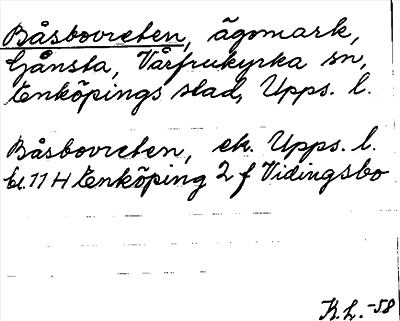 Båsbovreten, ägomark,
Gånsta, Vårfrukyrka sn,
Enköpings stad, Upps. l.
Båsbovreten, ek. Upps. l.
bl. 11 H Enköping 2 f Vidingsbo
K.L. -58